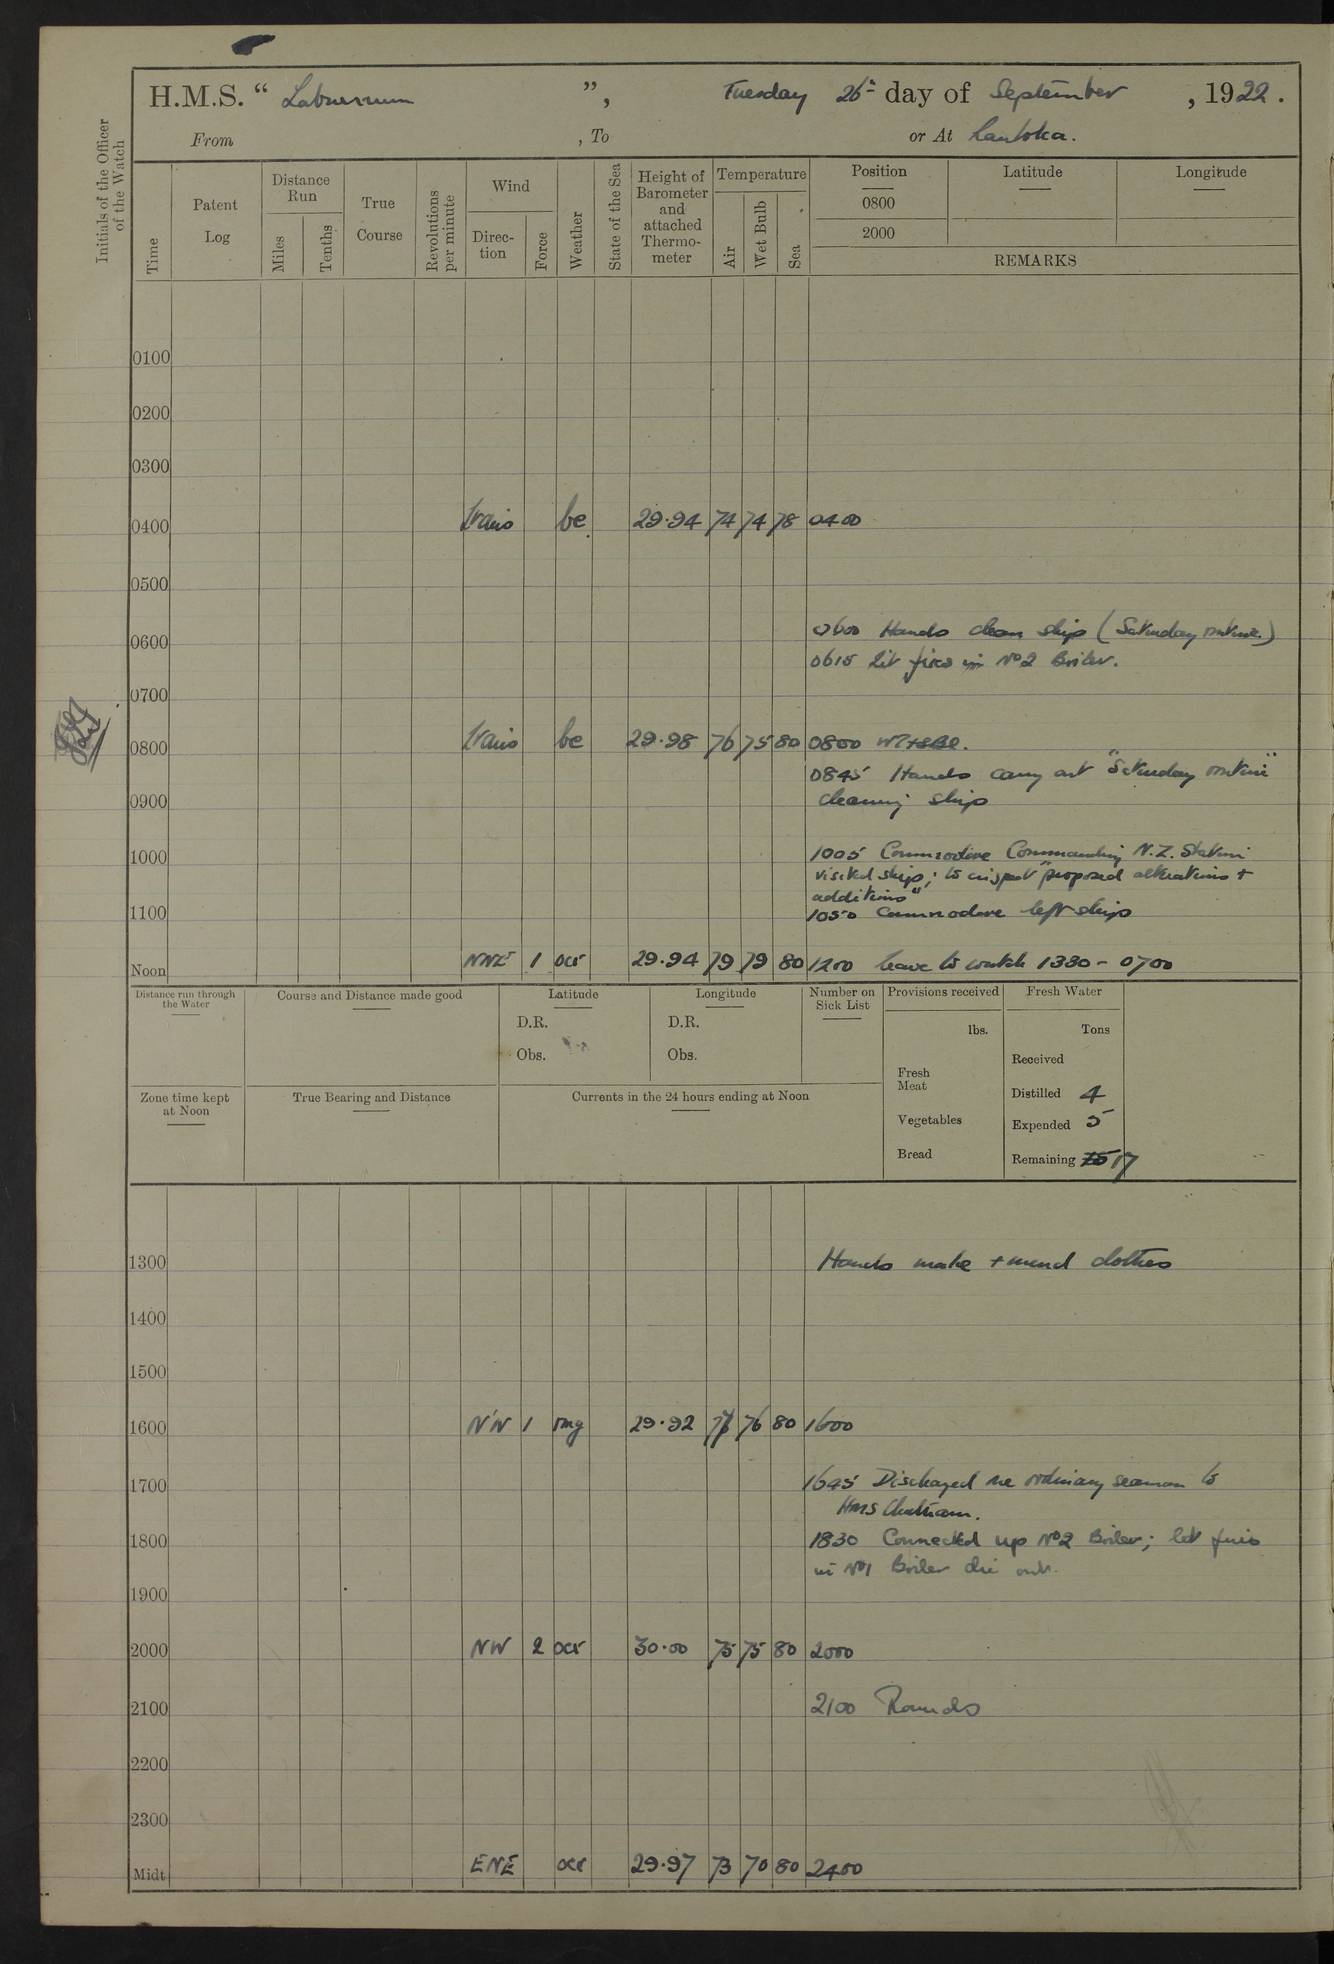 H.M.S. “ Laburnum ”, Tuesday 26th day of September , 1922.
From , To or At Lautoka.
Initials of the Officer of the Watch
Time
Patent Log
Distance Run
Miles
Tenths
True Course
Revolutions per minute
Wind
Direction
Force
Weather
State of the Sea
Height of Barometer and attached Thermometer
Temperature
Air
Wet Bulb
Sea
Position
0800
2000
Latitude
Longitude
REMARKS
0100
0200
0300
0400 bc 29.94 74 74 78 0400
0500
0600 0600 Hands clean ship (Saturday routine)
0615 Lit fires in No2 Boiler.
0700
0800 bc 29.98 76 75 80 0800
0845 Hands carry out "Saturday routine"
0900 cleaning ship
1000 1005 Commodore Commanding N.Z. Station
visited ship; to inspect "proposed alterations +
additions"
1100 1050 Commodore left ship
Noon NNE 1 ocr 29.94 79 79 80 1200 Leave to watch 1330 - 0700
Distance run through the Water
Course and Distance made good
Latitude
D.R.
Obs.
Longitude
D.R.
Obs.
Number on Sick List
Provisions received
lbs.
Fresh Meat
Vegetables
Bread
Fresh Water
Tons
Received
Distilled 4
Expended 5
Remaining 17
Zone time kept at Noon
True Bearing and Distance
Currents in the 24 hours ending at Noon
1300 Hands make + mend clothes
1400
1500
1600 NW 1 29.92 76 80 1600
1700 1645 Discharged one ordinary seaman to
HMS Chatham.
1800 1830 Connected up No2 Boiler; let fires
in No1 Boiler die out.
1900
2000 NW 2 ocr 30.00 75 75 80 2000
2100 2100 Rounds
2200
2300
Midt ENE ocr 29.97 73 70 80 2400